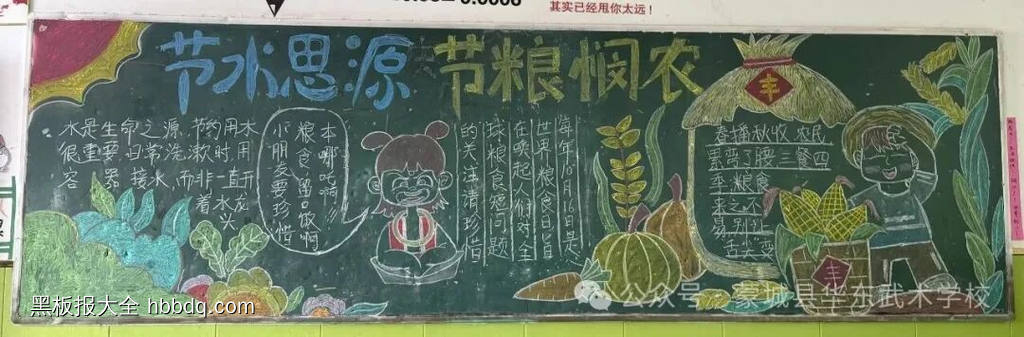 其实已经甩你太远！
节水思源 节粮悯农
水是生命之源,节约用水
很重要,日常洗漱时,用
容器接水,而非一直开
着水龙头
本哪吒
粮食
小朋友要珍惜
每年10月16日是
世界粮食日旨
在唤起人们对全
球粮食短问题
的关注请珍
丰
春播秋收 农民
累弯了腰三餐四
季粮食
来之不
易,别
舌尖变
丰
公众号 蒙城县华东武术学校
黑板报大全 hbbdq.com